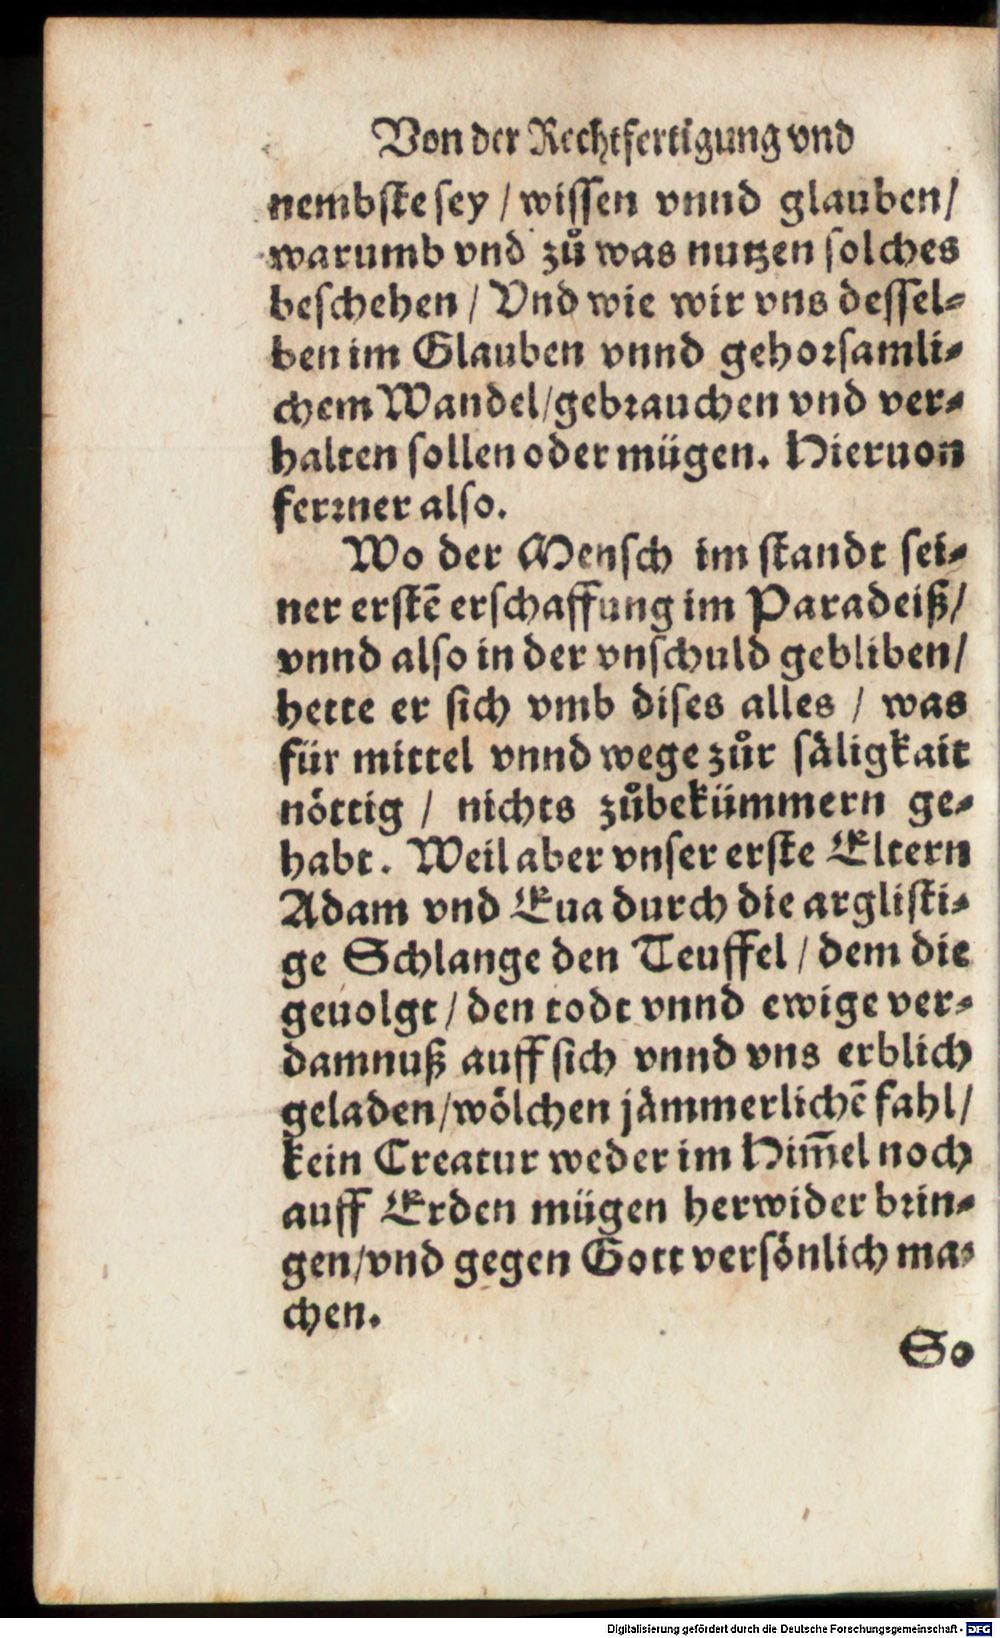 Von der Rechtfertigung vnd
nembste sey / wissen vnnd glauben /
warumb vnd zů was nutzen solches
beschehen / Vnd wie wir vns dessel-
ben im Glauben vnnd gehorsamli-
chem Wandel / gebrauchen vnd ver-
halten sollen oder mügen. Hieruon
ferrner also.
Wo der Mensch im standt sei-
ner erstē erschaffung im Paradeiß /
vnnd also in der vnschuld gebliben /
hette er sich vmb dises alles / was
für mittel vnnd wege zůr säligkait
nöttig / nichts zůbekümmern ge-
habt. Weil aber vnser erste Eltern
Adam vnd Eua durch die arglisti-
ge Schlange den Teuffel / dem die
geuolgt / den todt vnnd ewige ver-
damnuß auff sich vnnd vns erblich
geladen / wölchen jämmerlichē fahl /
kein Creatur weder im Him̄el noch
auff Erden mügen herwider brin-
gen / vnd gegen Gott versönlich ma-
chen.
So
Digitalisierung gefördert durch die Deutsche Forschungsgemeinschaft - DFG